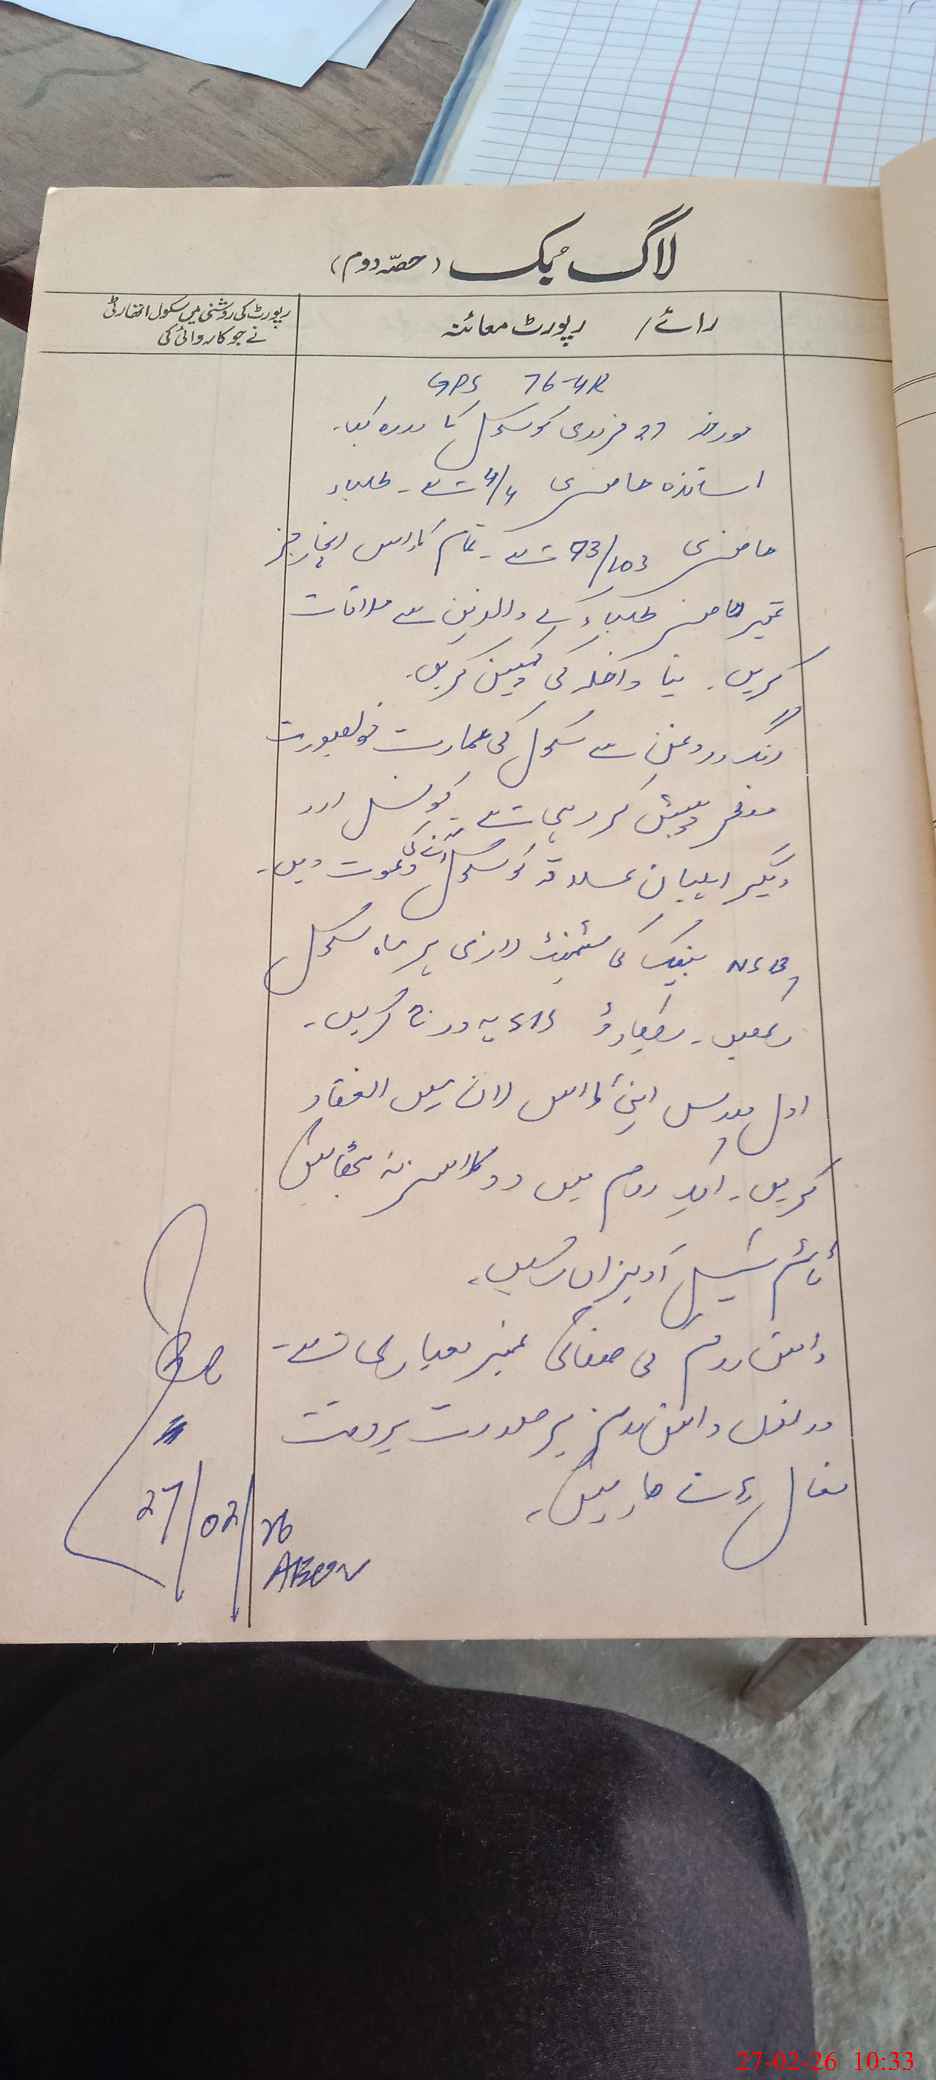 لاگ بک (حصّہ دوم)
رائے / رپورٹ معائنہ
رپورٹ کی روشنی میں سکول اتھارٹی
نے جو کاروائی کی
GPS 76-4R
مورخہ 27 فروری کو سکول کا دورہ کیا۔
اساتذہ حاضری 4/4 ہے۔ طلباء
حاضری 93/103 ہے۔ تمام کلاس انچارجز
غیر حاضر طلباء کے والدین سے ملاقات
کریں۔ نیا داخلہ کی کمپین کریں۔
رنگ و روغن سے سکول کی عمارت خوبصورت
منظر پیش کر رہی ہے۔ کونسل اور
دیگر اہلیان علاقہ کو سکول آنے کی دعوت دیں۔
NSB بینک کی سٹیٹمنٹ لازمی ہر ماہ سکول
رکھیں۔ ریکارڈ SIS پہ درج کریں۔
اول مدرس اپنی کلاس لان میں انعقاد
کریں۔ ایک روم میں دو کلاسز نہ بٹھائیں
ٹائم ٹیبل آویزاں رکھیں۔
واش روم کی صفائی غیر معیاری ہے۔
دونوں واش روم ہر صورت ہر وقت
فعال رہنے چاہییں۔
27/02/26
AEO
27-02-26 10:33